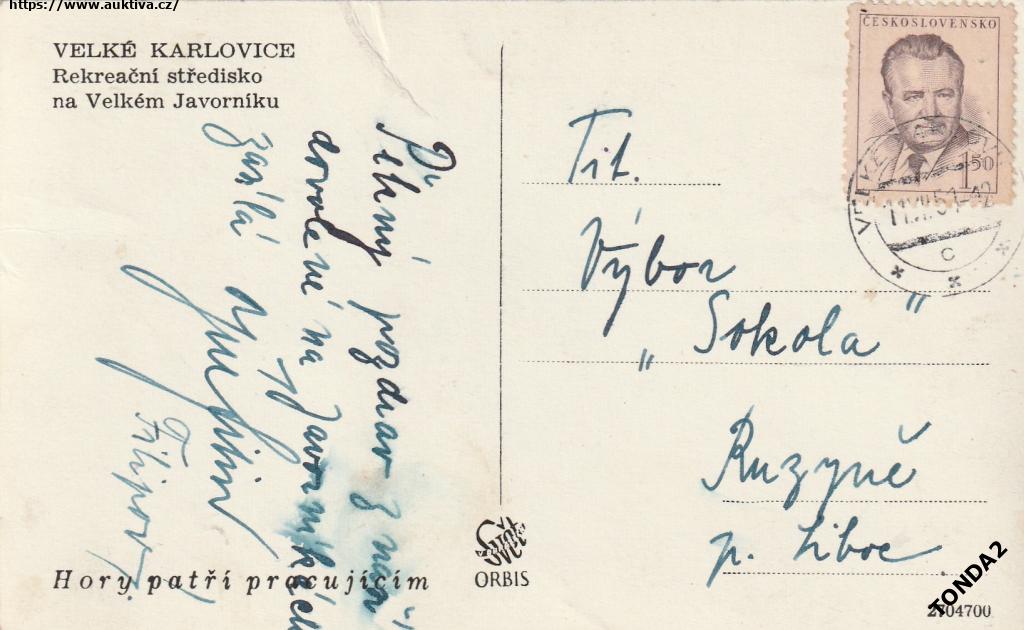 https://www.auktiva.cz/
VELKÉ KARLOVICE
Rekreační středisko
na Velkém Javorníku
Pěkný pozdrav z naší
dovolené na Javorníkách
zasílá
Filipovi
Hory patří pracujícím
ORBIS
ČESKOSLOVENSKO
1 50
VELKÉ
C
Tit.
Výbor
„Sokola"
Ruzyně
p. Liboc
TONDA2
2704700